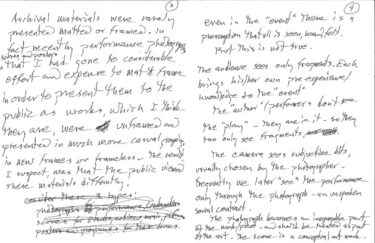 3
Archival materials were rarely
presented matted or framed. In
fact recently performance photographs
scores and posters
that I had gone to considerable
effort and expense to mat & frame
in order to present them to the
public as works, which I think
they are, were unframed and
presented in much more casual
in new frames or frameless. The result
I suspect, was that the public viewed
these materials differently.
consider these 3 types:
photographs of performance
scores
posters and programs
4
even in the "event" there is a
presumption that all is seen, heard, felt.
But this is not true.
The audience sees only fragments. Each
brings his/her own pre-experience/
knowledge to the "event"
The "actor"/performers don't see
the "play" – they are in it – so they
too only see fragments.
The camera sees subjective bits,
usually chosen by the photographer –
frequently we later "see" the performance
only through the photograph – an unspoken
social contract.
The photograph becomes an inseparable part
of the work/piece – and should be treated as part
of the art. The score is an conceptual art work.